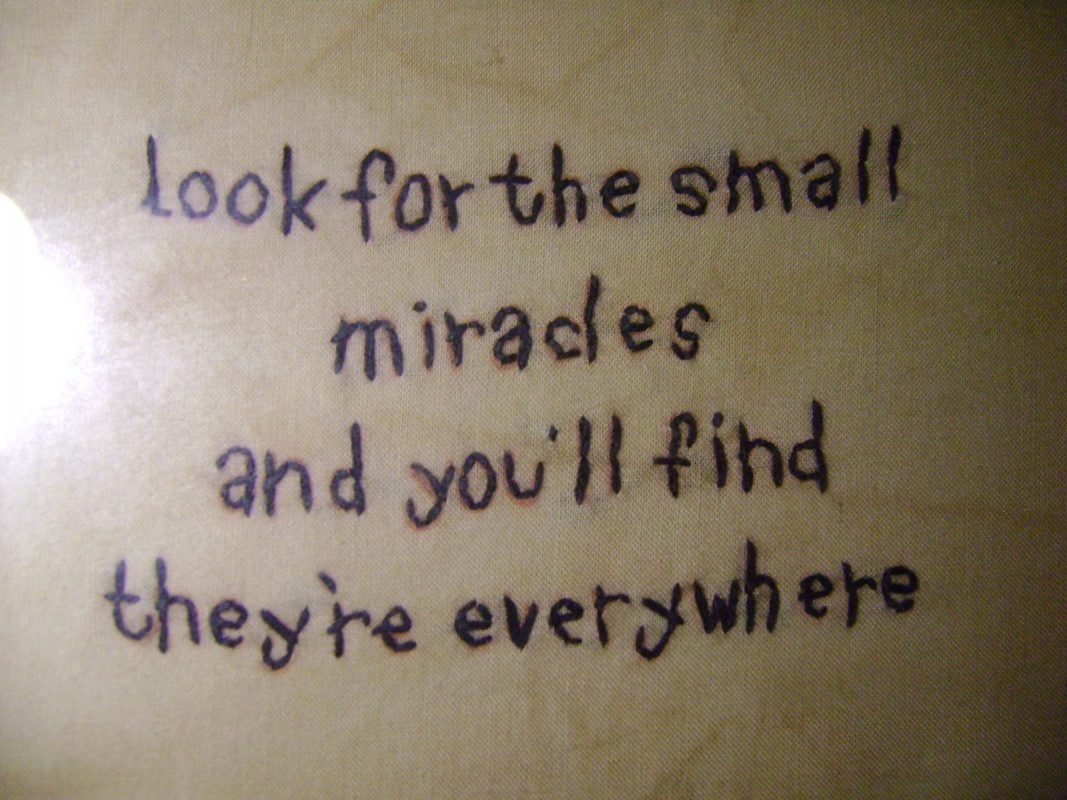 look for the small
miracles
and you'll find
they're everywhere